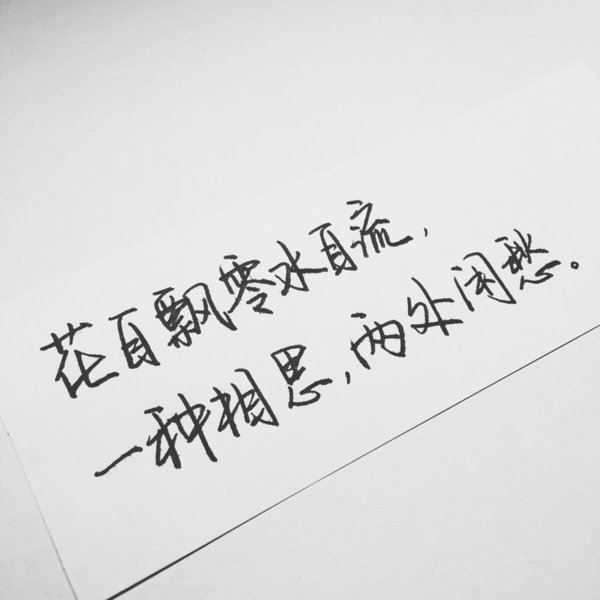 花自飘零水自流，
一种相思，两处闲愁。